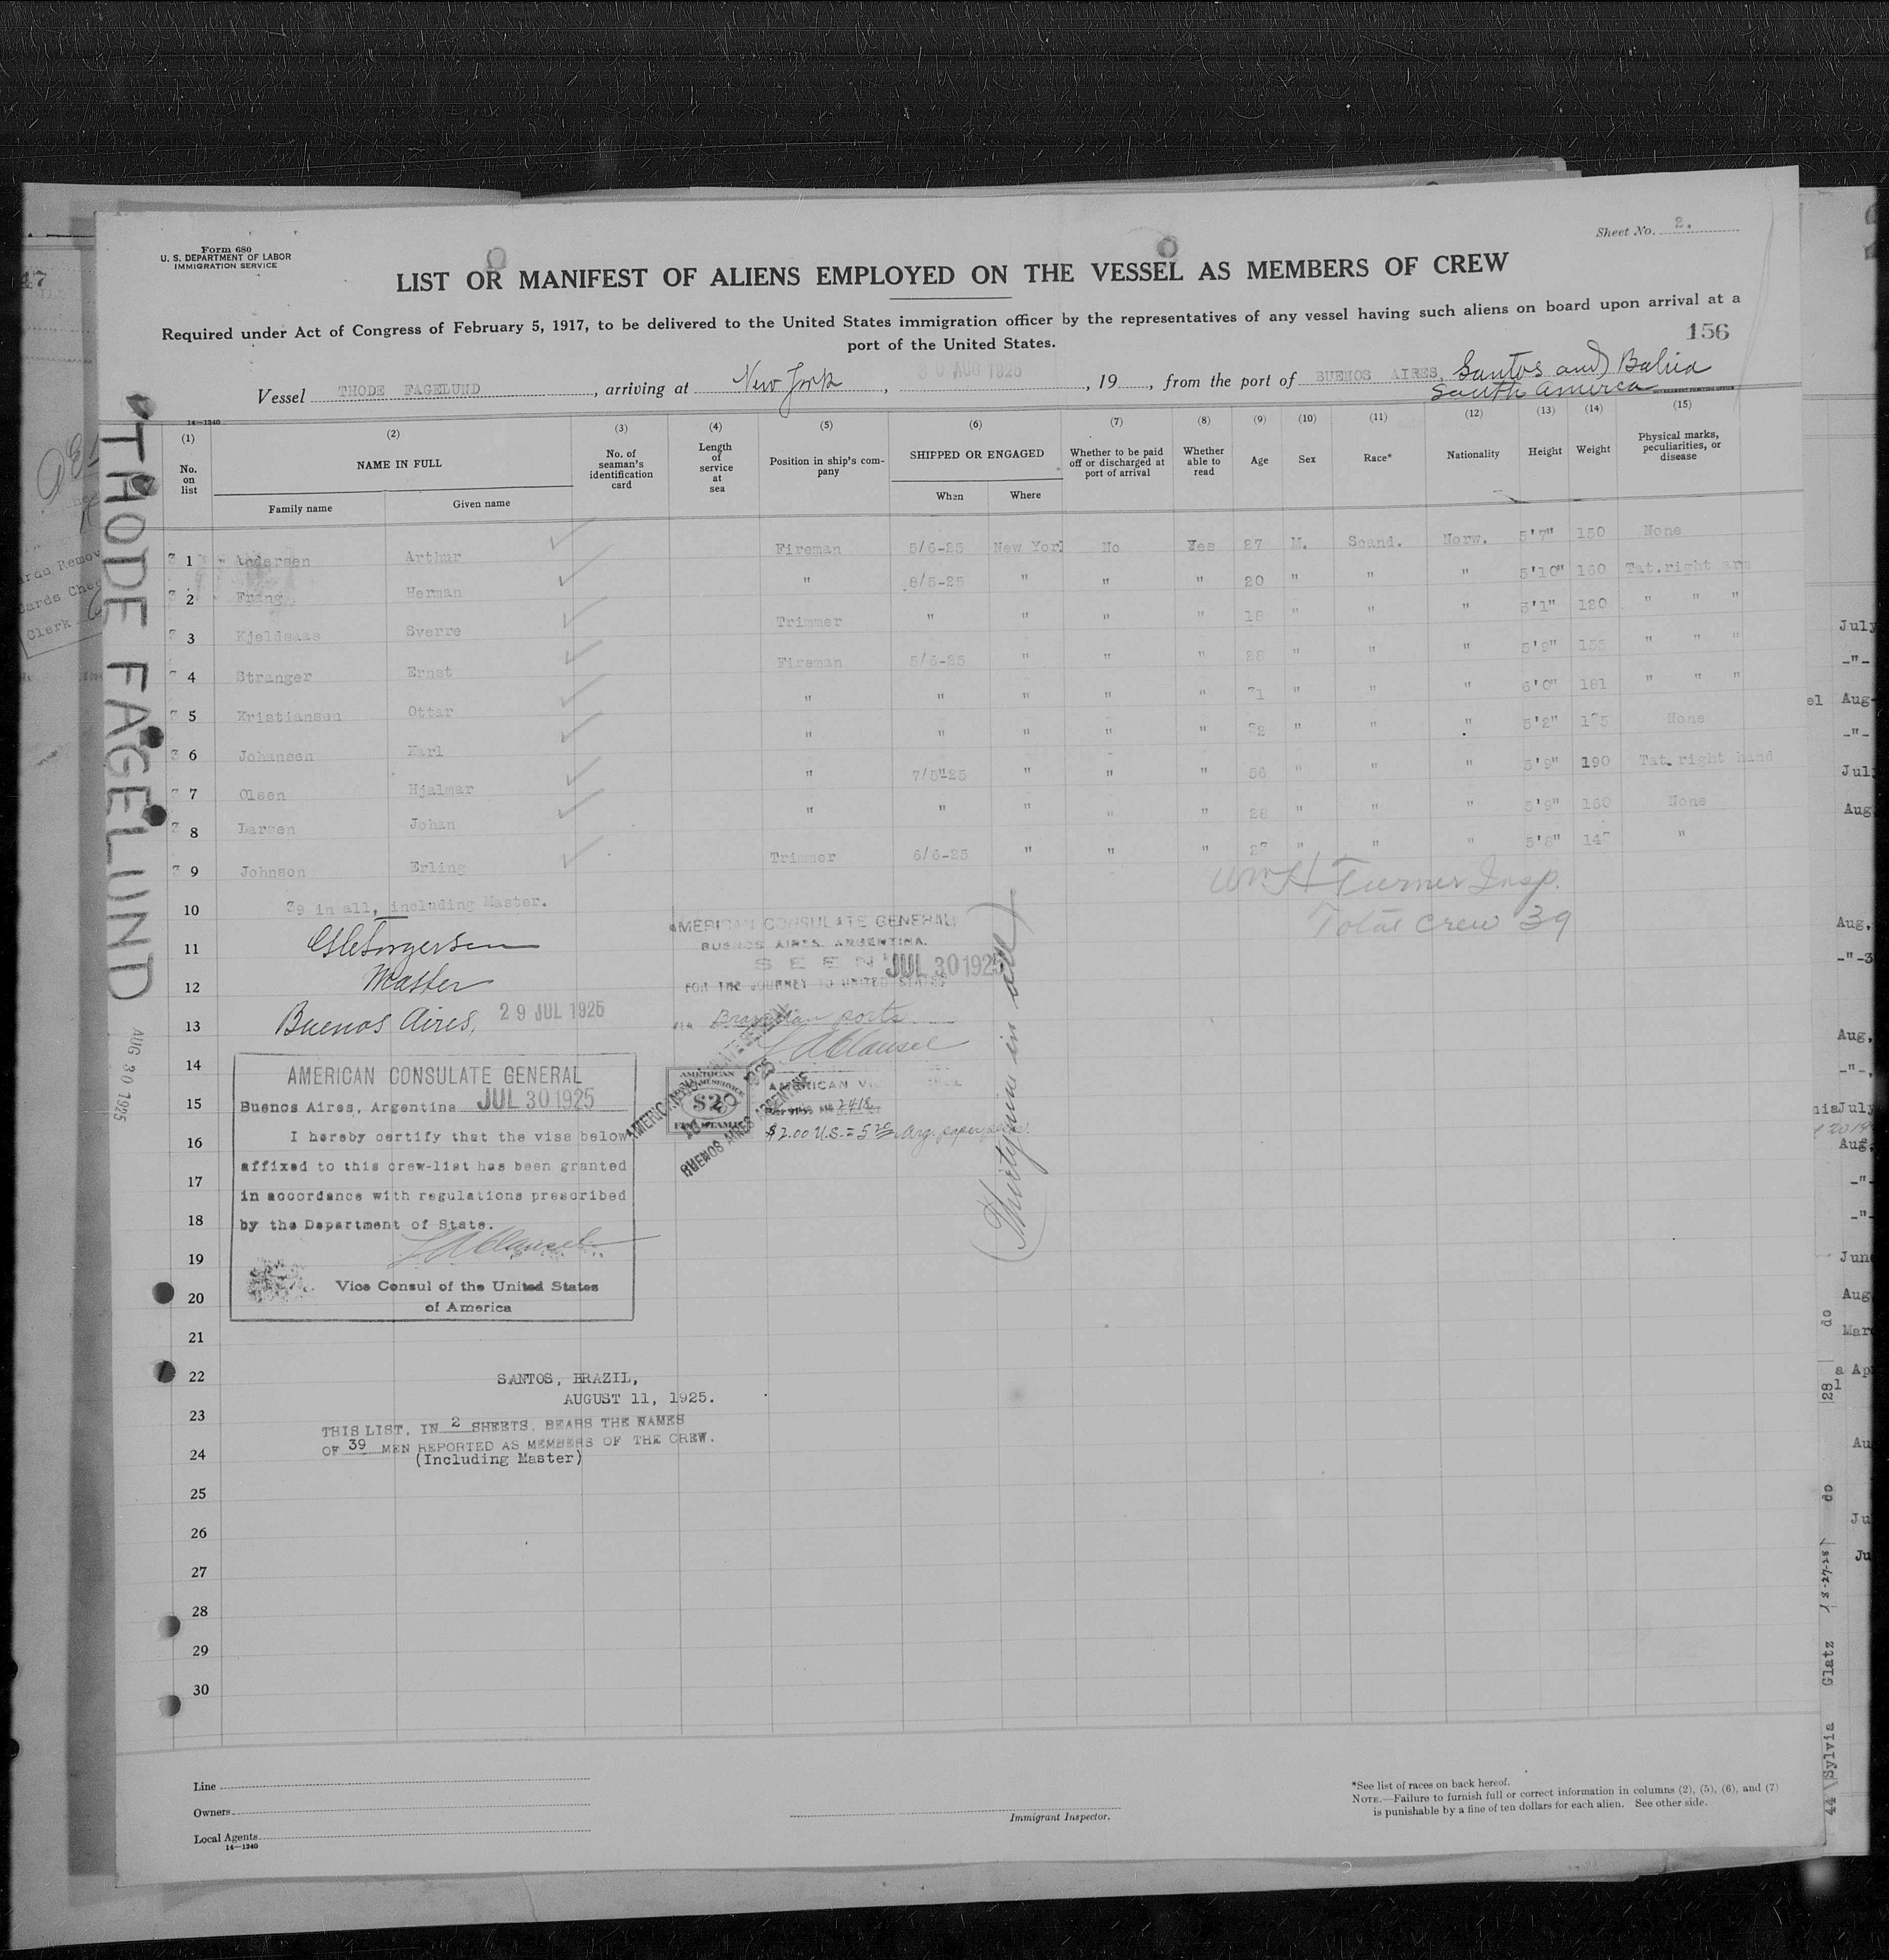 Form 680
U. S. DEPARTMENT OF LABOR
IMMIGRATION SERVICE
Sheet No. 2.
LIST OR MANIFEST OF ALIENS EMPLOYED ON THE VESSEL AS MEMBERS OF CREW
Required under Act of Congress of February 5, 1917, to be delivered to the United States immigration officer by the representatives of any vessel having such aliens on board upon arrival at a
port of the United States.
156
Vessel THODE FAGELUND, arriving at New York, 30 AUG 1925, 19, from the port of BUENOS AIRES, Santos and Bahia
South America
14—1240
(1) (2) (3) (4) (5) (6) (7) (8) (9) (10) (11) (12) (13) (14) (15)
No. on list NAME IN FULL No. of seaman's identification card Length of service at sea Position in ship's company SHIPPED OR ENGAGED Whether to be paid off or discharged at port of arrival Whether able to read Age Sex Race* Nationality Height Weight Physical marks, peculiarities, or disease
Family name Given name When Where
1 Andersen Arthur Fireman 5/6-25 New York No Yes 27 M. Scand. Norw. 5'7" 150 None
2 Frang Herman " 8/5-25 " " " 20 " " " 5'10" 160 Tat.right arm
3 Kjeldsaas Sverre Trimmer " " " " 18 " " " 5'1" 120 " " "
4 Stranger Ernst Fireman 5/6-25 " " " 28 " " " 5'9" 155 " " "
5 Kristiansen Ottar " " " " " 31 " " " 6'0" 181 " " "
6 Johansen Karl " " " " " 32 " " " 5'2" None
7 Olsen Hjalmar " 7/5-25 " " " 56 " " " 5'9" 190 Tat. right hand
8 Larsen Johan " " " " " 28 " " " 5'9" 160 None
9 Johnson Erling Trimmer 6/6-25 " " " 27 " " " 5'8" 147 "
Wm H Turner Insp.
Total crew 39
10
39 in all, including Master.
11
12
Master
13
Buenos Aires, 29 JUL 1925
14
15
16
17
18
19
20
21
22
23
24
25
26
27
28
29
30
AMERICAN CONSULATE GENERAL
BUENOS AIRES, ARGENTINA.
SEEN JUL 30 1925
FOR THE JOURNEY TO UNITED STATES
VIA Brazilian ports
AMERICAN
$2
FEE STAMP
AMERICAN VICE
2418
$2.00 U.S. = Arg. paper
(Thirtynine in all)
AMERICAN CONSULATE GENERAL
BUENOS AIRES ARGENTINE
AMERICAN CONSULATE GENERAL
Buenos Aires, Argentina JUL 30 1925
I hereby certify that the visa below
affixed to this crew-list has been granted
in accordance with regulations prescribed
by the Department of State.
Vice Consul of the United States
of America
SANTOS, BRAZIL,
AUGUST 11, 1925.
THIS LIST, IN 2 SHEETS, BEARS THE NAMES
OF 39 MEN REPORTED AS MEMBERS OF THE CREW.
(Including Master)
THODE FAGELUND
AUG 30 1925
Line
Owners
Local Agents
14—1240
Immigrant Inspector.
*See list of races on back hereof.
NOTE.—Failure to furnish full or correct information in columns (2), (5), (6), and (7)
is punishable by a fine of ten dollars for each alien. See other side.
47
Clerk
July
-"-
Aug
-"-
July
Aug
Aug,
-"-3
Aug,
-"-,
July
Aug,
-"-
-"-
June
Aug
Mar
a Ap
Au
Ju
Ju
do
28
do
8-27-25
Glatz
Sylvia
44